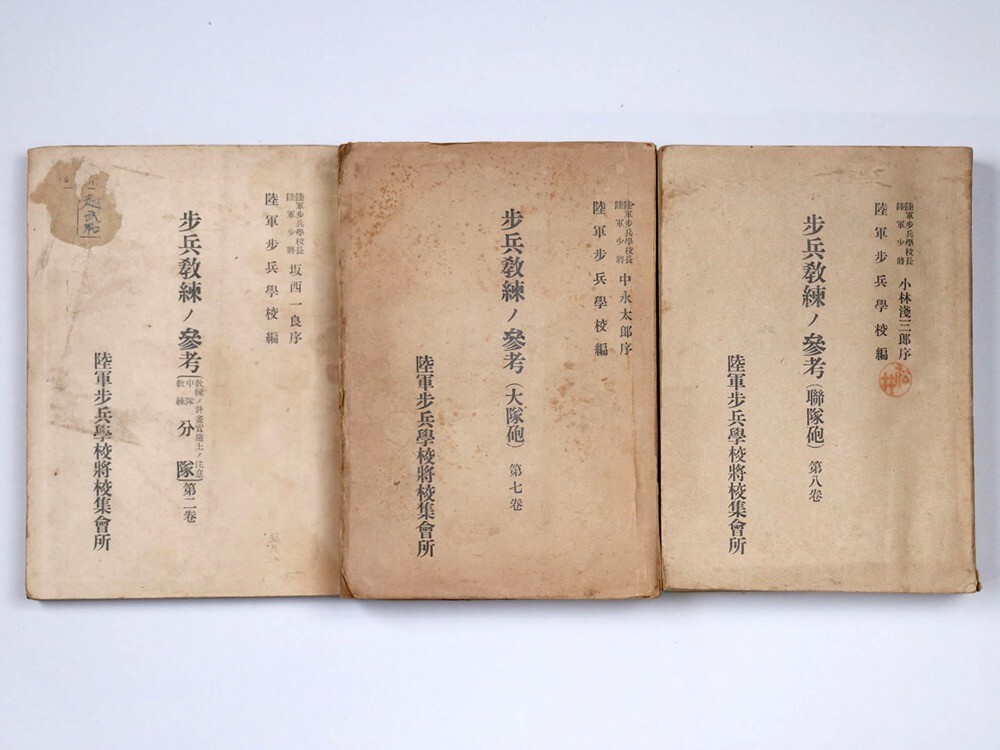 陸軍步兵學校長
陸軍少將
坂西一良序
陸軍步兵學校編
步兵教練ノ參考
教練ノ計畫實施上ノ注意
中隊教練
分隊
第二卷
陸軍步兵學校將校集會所
陸軍步兵學校長
陸軍少將
中永太郎序
陸軍步兵學校編
步兵教練ノ參考(大隊砲)第七卷
陸軍步兵學校將校集會所
陸軍步兵學校長
陸軍少將
小林淺三郎序
陸軍步兵學校編
松井
步兵教練ノ參考(聯隊砲)第八卷
陸軍步兵學校將校集會所